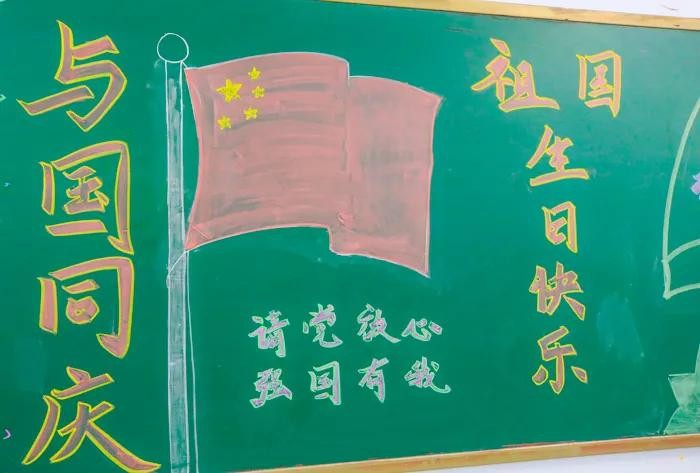 与国同庆
请党放心
强国有我
祖国
生日快乐